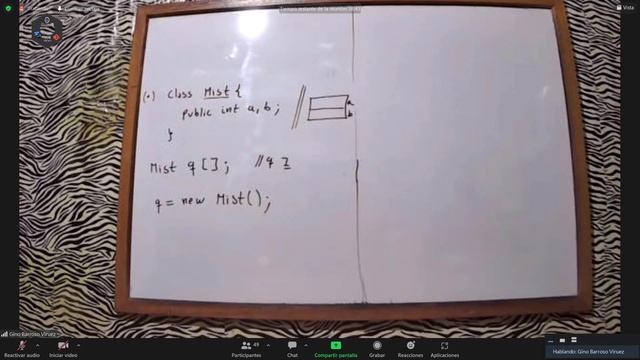 Tiempo restante de la reunión:
Vista
(•) Class Mist {
public int a, b; //
a
b
}
Mist q []; // q
q = new Mist();
Gino Barroso Viruez
Reactivar audio
Iniciar video
49
Chat
Compartir pantalla
Grabar
Reacciones
Aplicaciones
Hablando: Gino Barroso Viruez